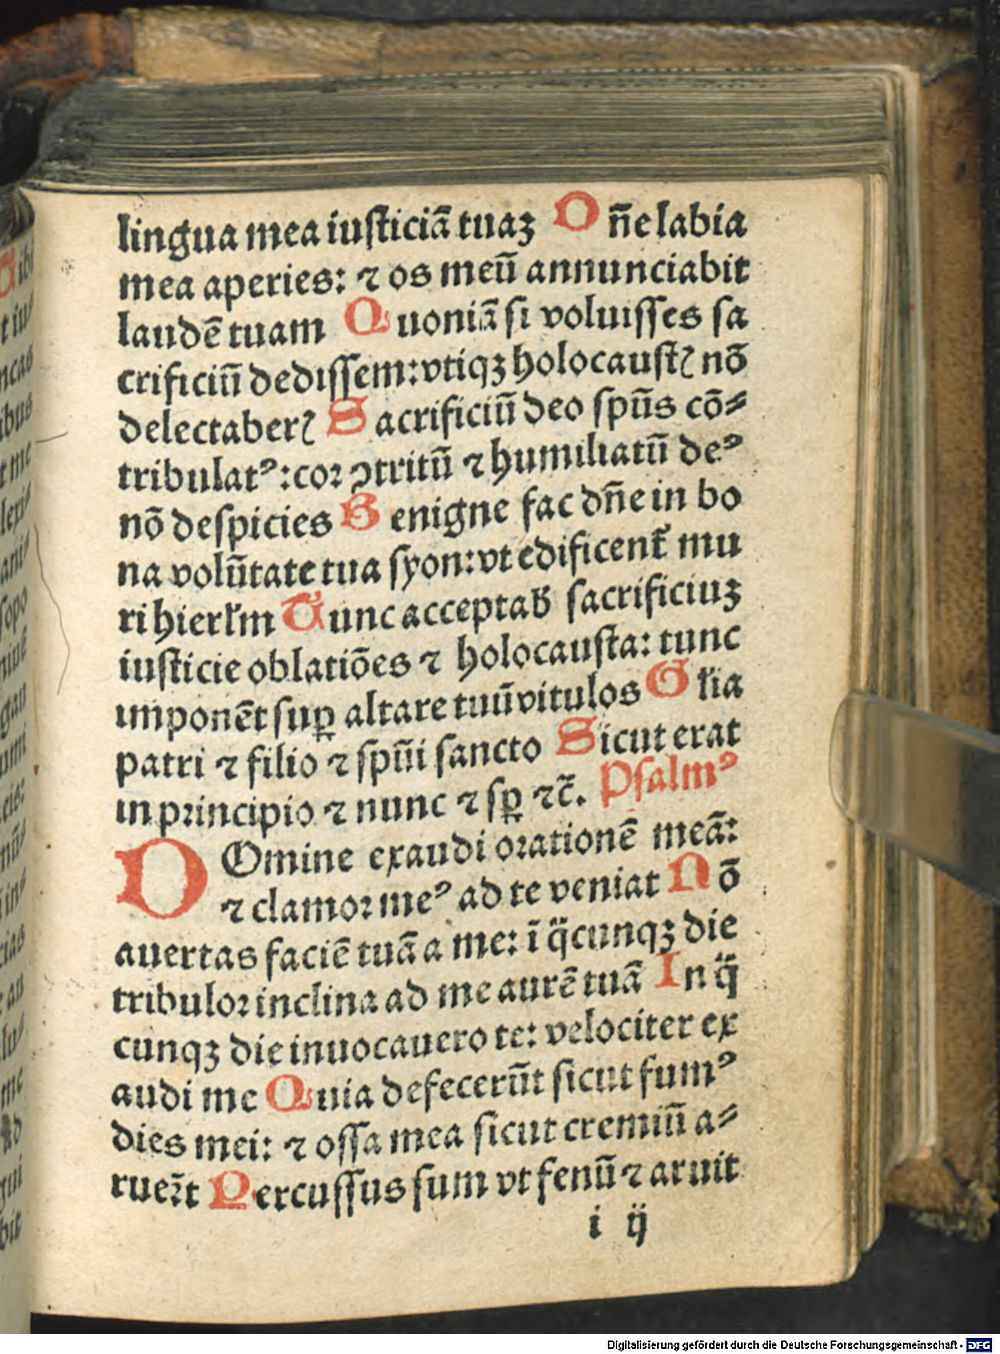 lingua mea iusticiã tuaʒ Dñe labia
mea aperies: ⁊ os meũ annunciabit
laudẽ tuam Quoniã si voluisses sa
crificiũ dedissem: vtiqʒ holocaustꝭ nõ
delectaberꝭ Sacrificiũ deo spũs cõ⸗
tribulatꝰ: cor ↄtritũ ⁊ humiliatũ deꝰ
nõ despicies Benigne fac dñe in bo
na volũtate tua syon: vt edificent᷑ mu
ri hierłm Tunc acceptab̃ sacrificiuʒ
iusticie oblatiões ⁊ holocausta: tunc
imponẽt suꝑ altare tuũ vitulos Głia
patri ⁊ filio ⁊ spũi sancto Sicut erat
in principio ⁊ nunc ⁊ sꝑ ⁊c̃. Psalmꝰ
DOmine exaudi orationẽ meã:
⁊ clamor meꝰ ad te veniat Nõ
auertas faciẽ tuã a me: ĩ q̃cunqʒ die
tribulor inclina ad me aurẽ tuã In q̃
cunqʒ die inuocauero te: velociter ex
audi me Quia defecerũt sicut fumꝰ
dies mei: ⁊ ossa mea sicut cremiũ a⸗
ruer̃t Percussus sum vt fenũ ⁊ aruit
i ij
Digitalisierung gefördert durch die Deutsche Forschungsgemeinschaft - DFG